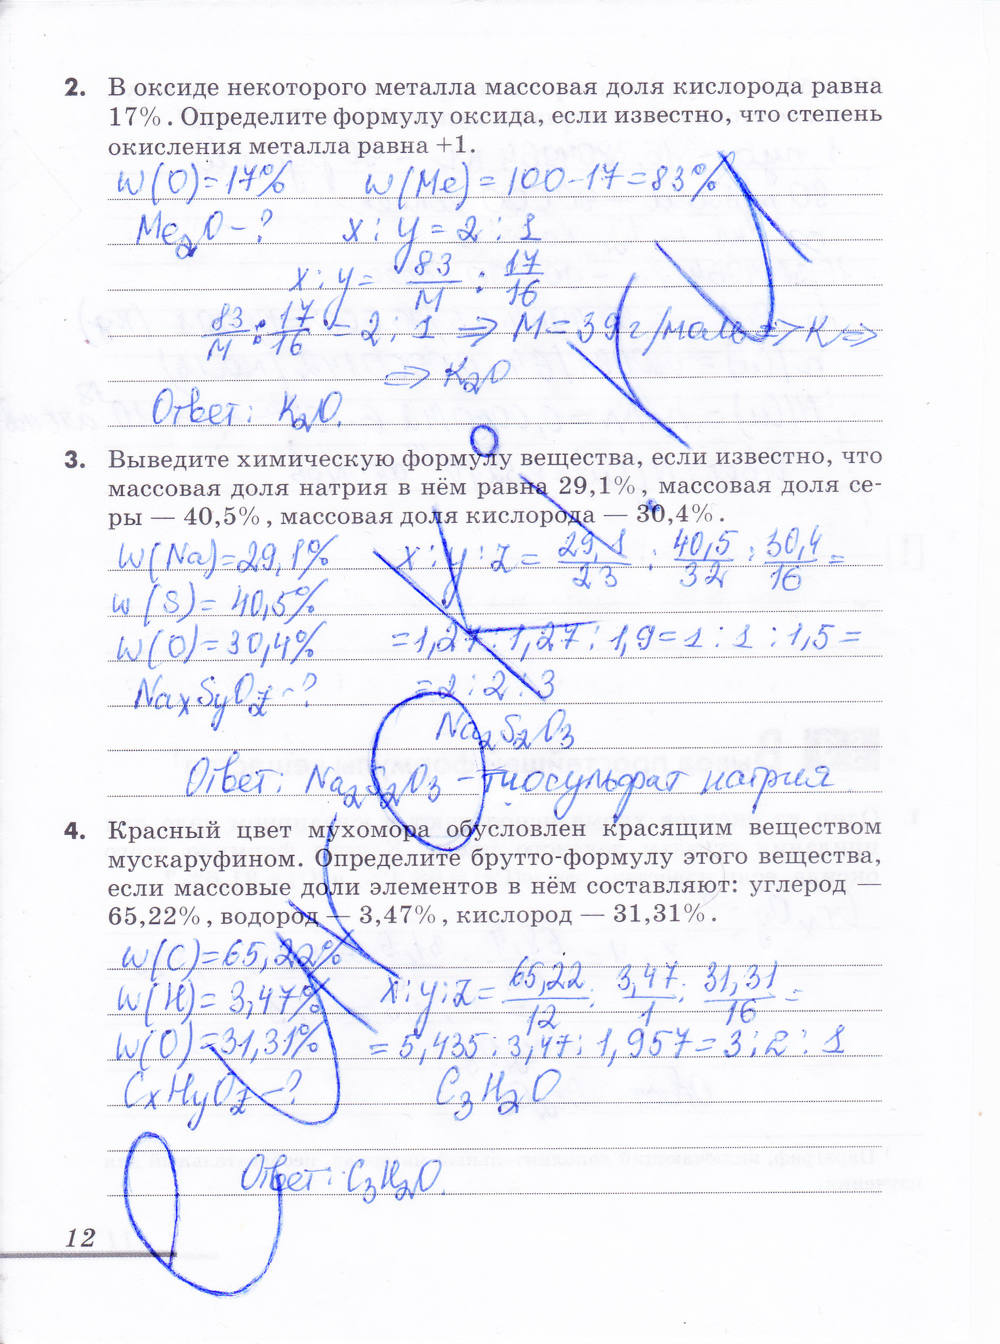 2. В оксиде некоторого металла массовая доля кислорода равна
17%. Определите формулу оксида, если известно, что степень
окисления металла равна +1.
W(O)=17% W(Me)=100-17=83%
Me2O-? x:y=2:1
x:y= 83/M : 17/16
83/M : 17/16 - 2:1 => M=39г/моль => K =>
=> K2O
Ответ: K2O.
3. Выведите химическую формулу вещества, если известно, что
массовая доля натрия в нём равна 29,1%, массовая доля се-
ры — 40,5%, массовая доля кислорода — 30,4%.
W(Na)=29,1% x:y:z= 29,1/23 : 40,5/32 : 30,4/16 =
W(S)=40,5%
W(O)=30,4% =1,27:1,27:1,9=1:1:1,5=
NaxSyOz-? =2:2:3
Na2S2O3
Ответ: Na2S2O3 - тиосульфат натрия
4. Красный цвет мухомора обусловлен красящим веществом
мускаруфином. Определите брутто-формулу этого вещества,
если массовые доли элементов в нём составляют: углерод —
65,22%, водород — 3,47%, кислород — 31,31%.
W(C)=65,22%
W(H)=3,47% x:y:z= 65,22/12 : 3,47/1 : 31,31/16 =
W(O)=31,31% =5,435:3,47:1,957=3:2:1
CxHyOz-? C3H2O
Ответ: C3H2O.
12